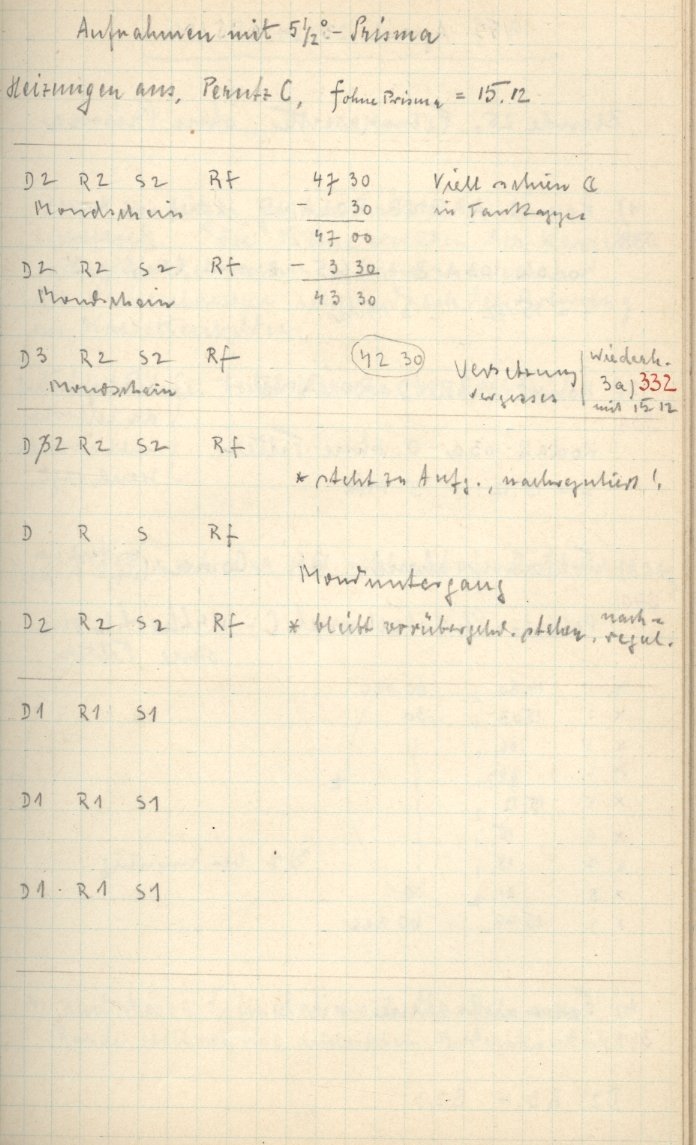 Aufnahmen mit 5½° - Prisma
Heizungen aus, Perutz C, f ohne Prisma = 15.12
D2 R2 S2 Rf 47 30 Viell schien ☾
Mondschein - 30 in
47 00
D2 R2 S2 Rf - 3 30
Mondschein 43 30
D3 R2 S2 Rf 42 30 Versetzung Wiederh.
Mondschein vergessen 3a) 332
mit 15.12
D2 R2 S2 Rf
* steht zu Aufg., nachreguliert!
D R S Rf
Monduntergang
D2 R2 S2 Rf * bleibt vorübergehd. stehen, nach-
regul.
D1 R1 S1
D1 R1 S1
D1 R1 S1